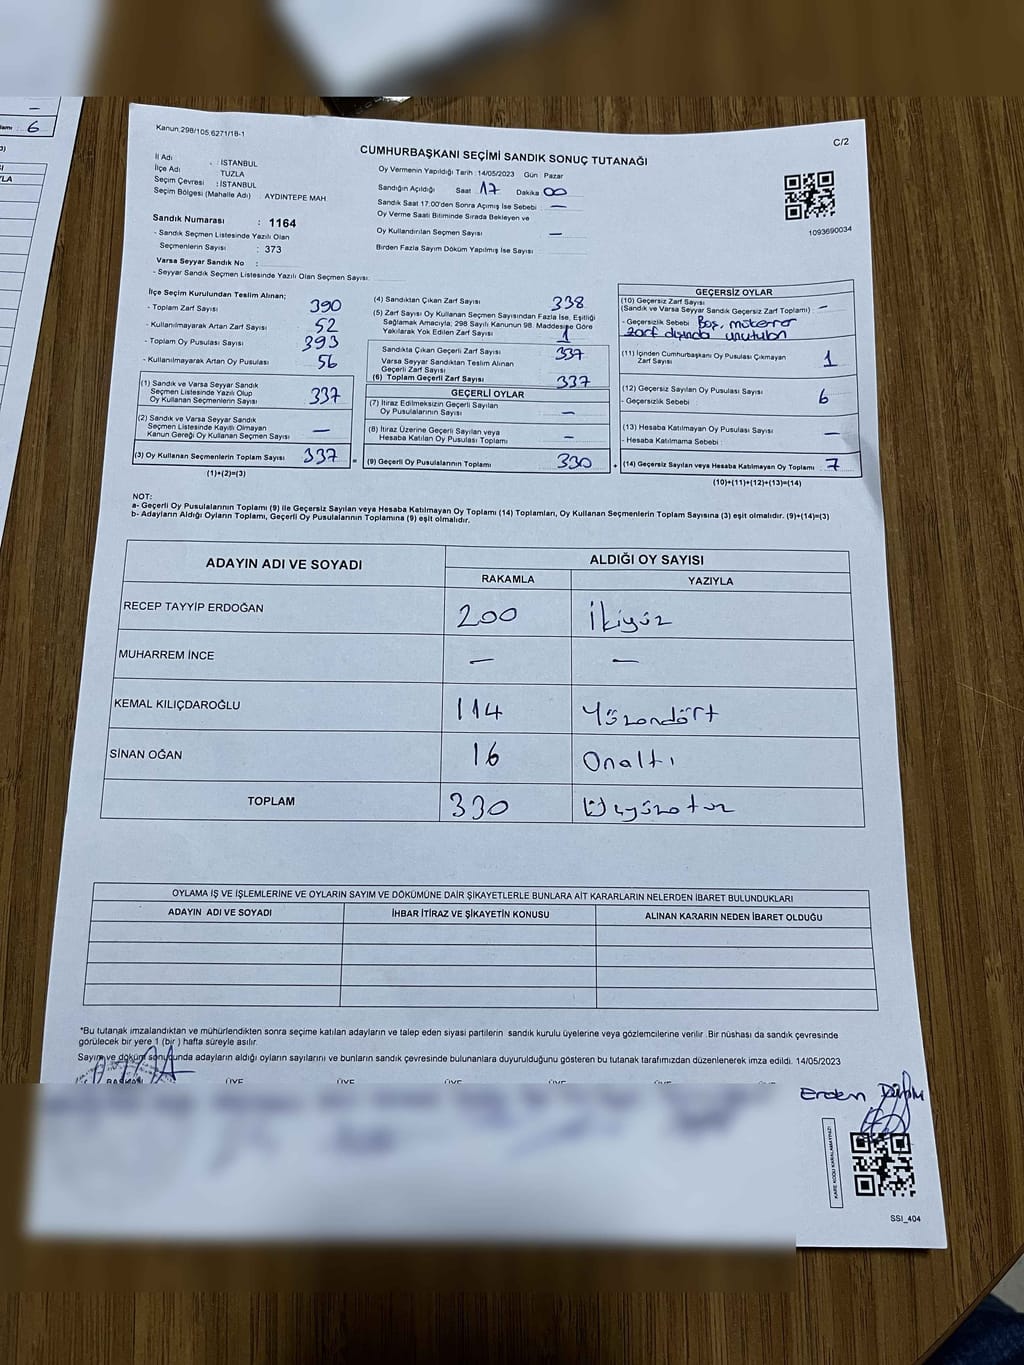 6
Kanun.298/105,6271/18-1
C/2
CUMHURBAŞKANI SEÇİMİ SANDIK SONUÇ TUTANAĞI
İl Adı : İSTANBUL
İlçe Adı : TUZLA
Seçim Çevresi : İSTANBUL
Seçim Bölgesi (Mahalle Adı) : AYDINTEPE MAH
Sandık Numarası : 1164
- Sandık Seçmen Listesinde Yazılı Olan
Seçmenlerin Sayısı : 373
Varsa Seyyar Sandık No :
- Seyyar Sandık Seçmen Listesinde Yazılı Olan Seçmen Sayısı:
Oy Vermenin Yapıldığı Tarih : 14/05/2023 Gün : Pazar
Sandığın Açıldığı Saat 17 Dakika 00
Sandık Saat 17:00'den Sonra Açımış İse Sebebi : —
Oy Verme Saati Bitiminde Sırada Bekleyen ve
Oy Kullandırılan Seçmen Sayısı —
Birden Fazla Sayım Döküm Yapılmış İse Sayısı
1093690034
İlçe Seçim Kurulundan Teslim Alınan;
- Toplam Zarf Sayısı 390
- Kullanılmayarak Artan Zarf Sayısı 52
- Toplam Oy Pusulası Sayısı 393
- Kullanılmayarak Artan Oy Pusulası 56
(1) Sandık ve Varsa Seyyar Sandık
Seçmen Listesinde Yazılı Olup
Oy Kullanan Seçmenlerin Sayısı 337
(2) Sandık ve Varsa Seyyar Sandık
Seçmen Listesinde Kayıtlı Olmayan
Kanun Gereği Oy Kullanan Seçmen Sayısı —
(3) Oy Kullanan Seçmenlerin Toplam Sayısı 337
(1)+(2)=(3)
(4) Sandıktan Çıkan Zarf Sayısı 338
(5) Zarf Sayısı Oy Kullanan Seçmen Sayısından Fazla İse, Eşitliği
Sağlamak Amacıyla, 298 Sayılı Kanunun 98. Maddesine Göre
Yakılarak Yok Edilen Zarf Sayısı 1
Sandıkta Çıkan Geçerli Zarf Sayısı 337
Varsa Seyyar Sandıktan Teslim Alınan
Geçerli Zarf Sayısı
(6) Toplam Geçerli Zarf Sayısı 337
GEÇERLİ OYLAR
(7) İtiraz Edilmeksizin Geçerli Sayılan
Oy Pusulalarının Sayısı —
(8) İtiraz Üzerine Geçerli Sayılan veya
Hesaba Katılan Oy Pusulası Toplamı —
= (9) Geçerli Oy Pusulalarının Toplamı 330
GEÇERSİZ OYLAR
(10) Geçersiz Zarf Sayısı
(Sandık ve Varsa Seyyar Sandık Geçersiz Zarf Toplamı) : —
- Geçersizlik Sebebi Boş, mükerrer
zarf dışında unutulan
(11) İçinden Cumhurbaşkanı Oy Pusulası Çıkmayan
Zarf Sayısı 1
(12) Geçersiz Sayılan Oy Pusulası Sayısı 6
- Geçersizlik Sebebi :
(13) Hesaba Katılmayan Oy Pusulası Sayısı —
- Hesaba Katılmama Sebebi :
+ (14) Geçersiz Sayılan veya Hesaba Katılmayan Oy Toplamı 7
(10)+(11)+(12)+(13)=(14)
NOT:
a- Geçerli Oy Pusulalarının Toplamı (9) ile Geçersiz Sayılan veya Hesaba Katılmayan Oy Toplamı (14) Toplamları, Oy Kullanan Seçmenlerin Toplam Sayısına (3) eşit olmalıdır. (9)+(14)=(3)
b- Adayların Aldığı Oyların Toplamı, Geçerli Oy Pusulalarının Toplamına (9) eşit olmalıdır.
ADAYIN ADI VE SOYADI ALDIĞI OY SAYISI
RAKAMLA YAZIYLA
RECEP TAYYİP ERDOĞAN 200 İkiyüz
MUHARREM İNCE — —
KEMAL KILIÇDAROĞLU 114 Yüzondört
SİNAN OĞAN 16 Onaltı
TOPLAM 330 Üçyüzotuz
OYLAMA İŞ VE İŞLEMLERİNE VE OYLARIN SAYIM VE DÖKÜMÜNE DAİR ŞİKAYETLERLE BUNLARA AİT KARARLARIN NELERDEN İBARET BULUNDUKLARI
ADAYIN ADI VE SOYADI İHBAR İTİRAZ VE ŞİKAYETİN KONUSU ALINAN KARARIN NEDEN İBARET OLDUĞU
*Bu tutanak imzalandıktan ve mühürlendikten sonra seçime katılan adayların ve talep eden siyasi partilerin sandık kurulu üyelerine veya gözlemcilerine verilir .Bir nüshası da sandık çevresinde
görülecek bir yere 1 (bir ) hafta süreyle asılır.
Sayım ve döküm sonucunda adayların aldığı oyların sayılarını ve bunların sandık çevresinde bulunanlara duyurulduğunu gösteren bu tutanak tarafımızdan düzenlenerek imza edildi. 14/05/2023
BAŞKAN ÜYE ÜYE ÜYE ÜYE ÜYE ÜYE
Erdem
KARE KODU KARALAMAYINIZ!
SSI_404